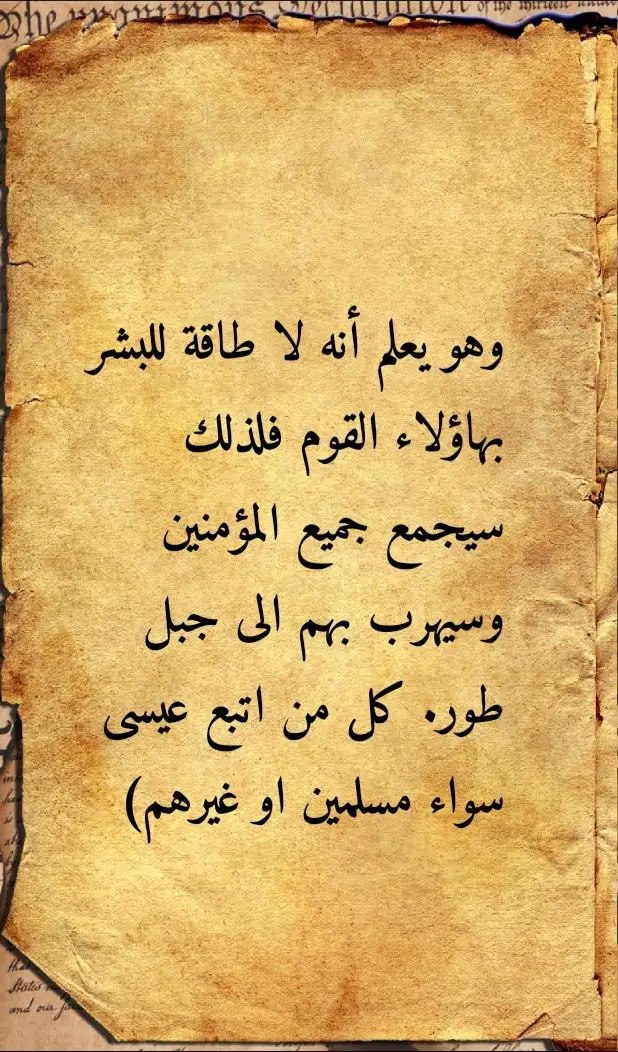 The unanimous Declaration of the thirteen united
وهو يعلم أنه لا طاقة للبشر
بهاؤلاء القوم فلذلك
سيجمع جميع المؤمنين
وسيهرب بهم الى جبل
طور. كل من اتبع عيسى
سواء مسلمين او غيرهم)
States
and our